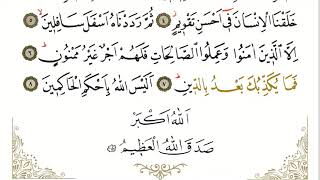 خَلَقْنَا الْاِنْسَانَ فٖٓي اَحْسَنِ تَقْوٖيمٍؗ ﴿٤﴾ ثُمَّ رَدَدْنَاهُ اَسْفَلَ سَافِلٖينَۙ ﴿٥﴾
اِلَّا الَّذٖينَ اٰمَنُوا وَعَمِلُوا الصَّالِحَاتِ فَلَهُمْ اَجْرٌ غَيْرُ مَمْنُونٍؕ ﴿٦﴾
فَمَا يُكَذِّبُكَ بَعْدُ بِالدّٖينِؕ ﴿٧﴾ اَلَيْسَ اللّٰهُ بِاَحْكَمِ الْحَاكِمٖينَ ﴿٨﴾
اَللّٰهُ اَكْبَرْ
صَدَقَ اللّٰهُ الْعَظٖيمُ